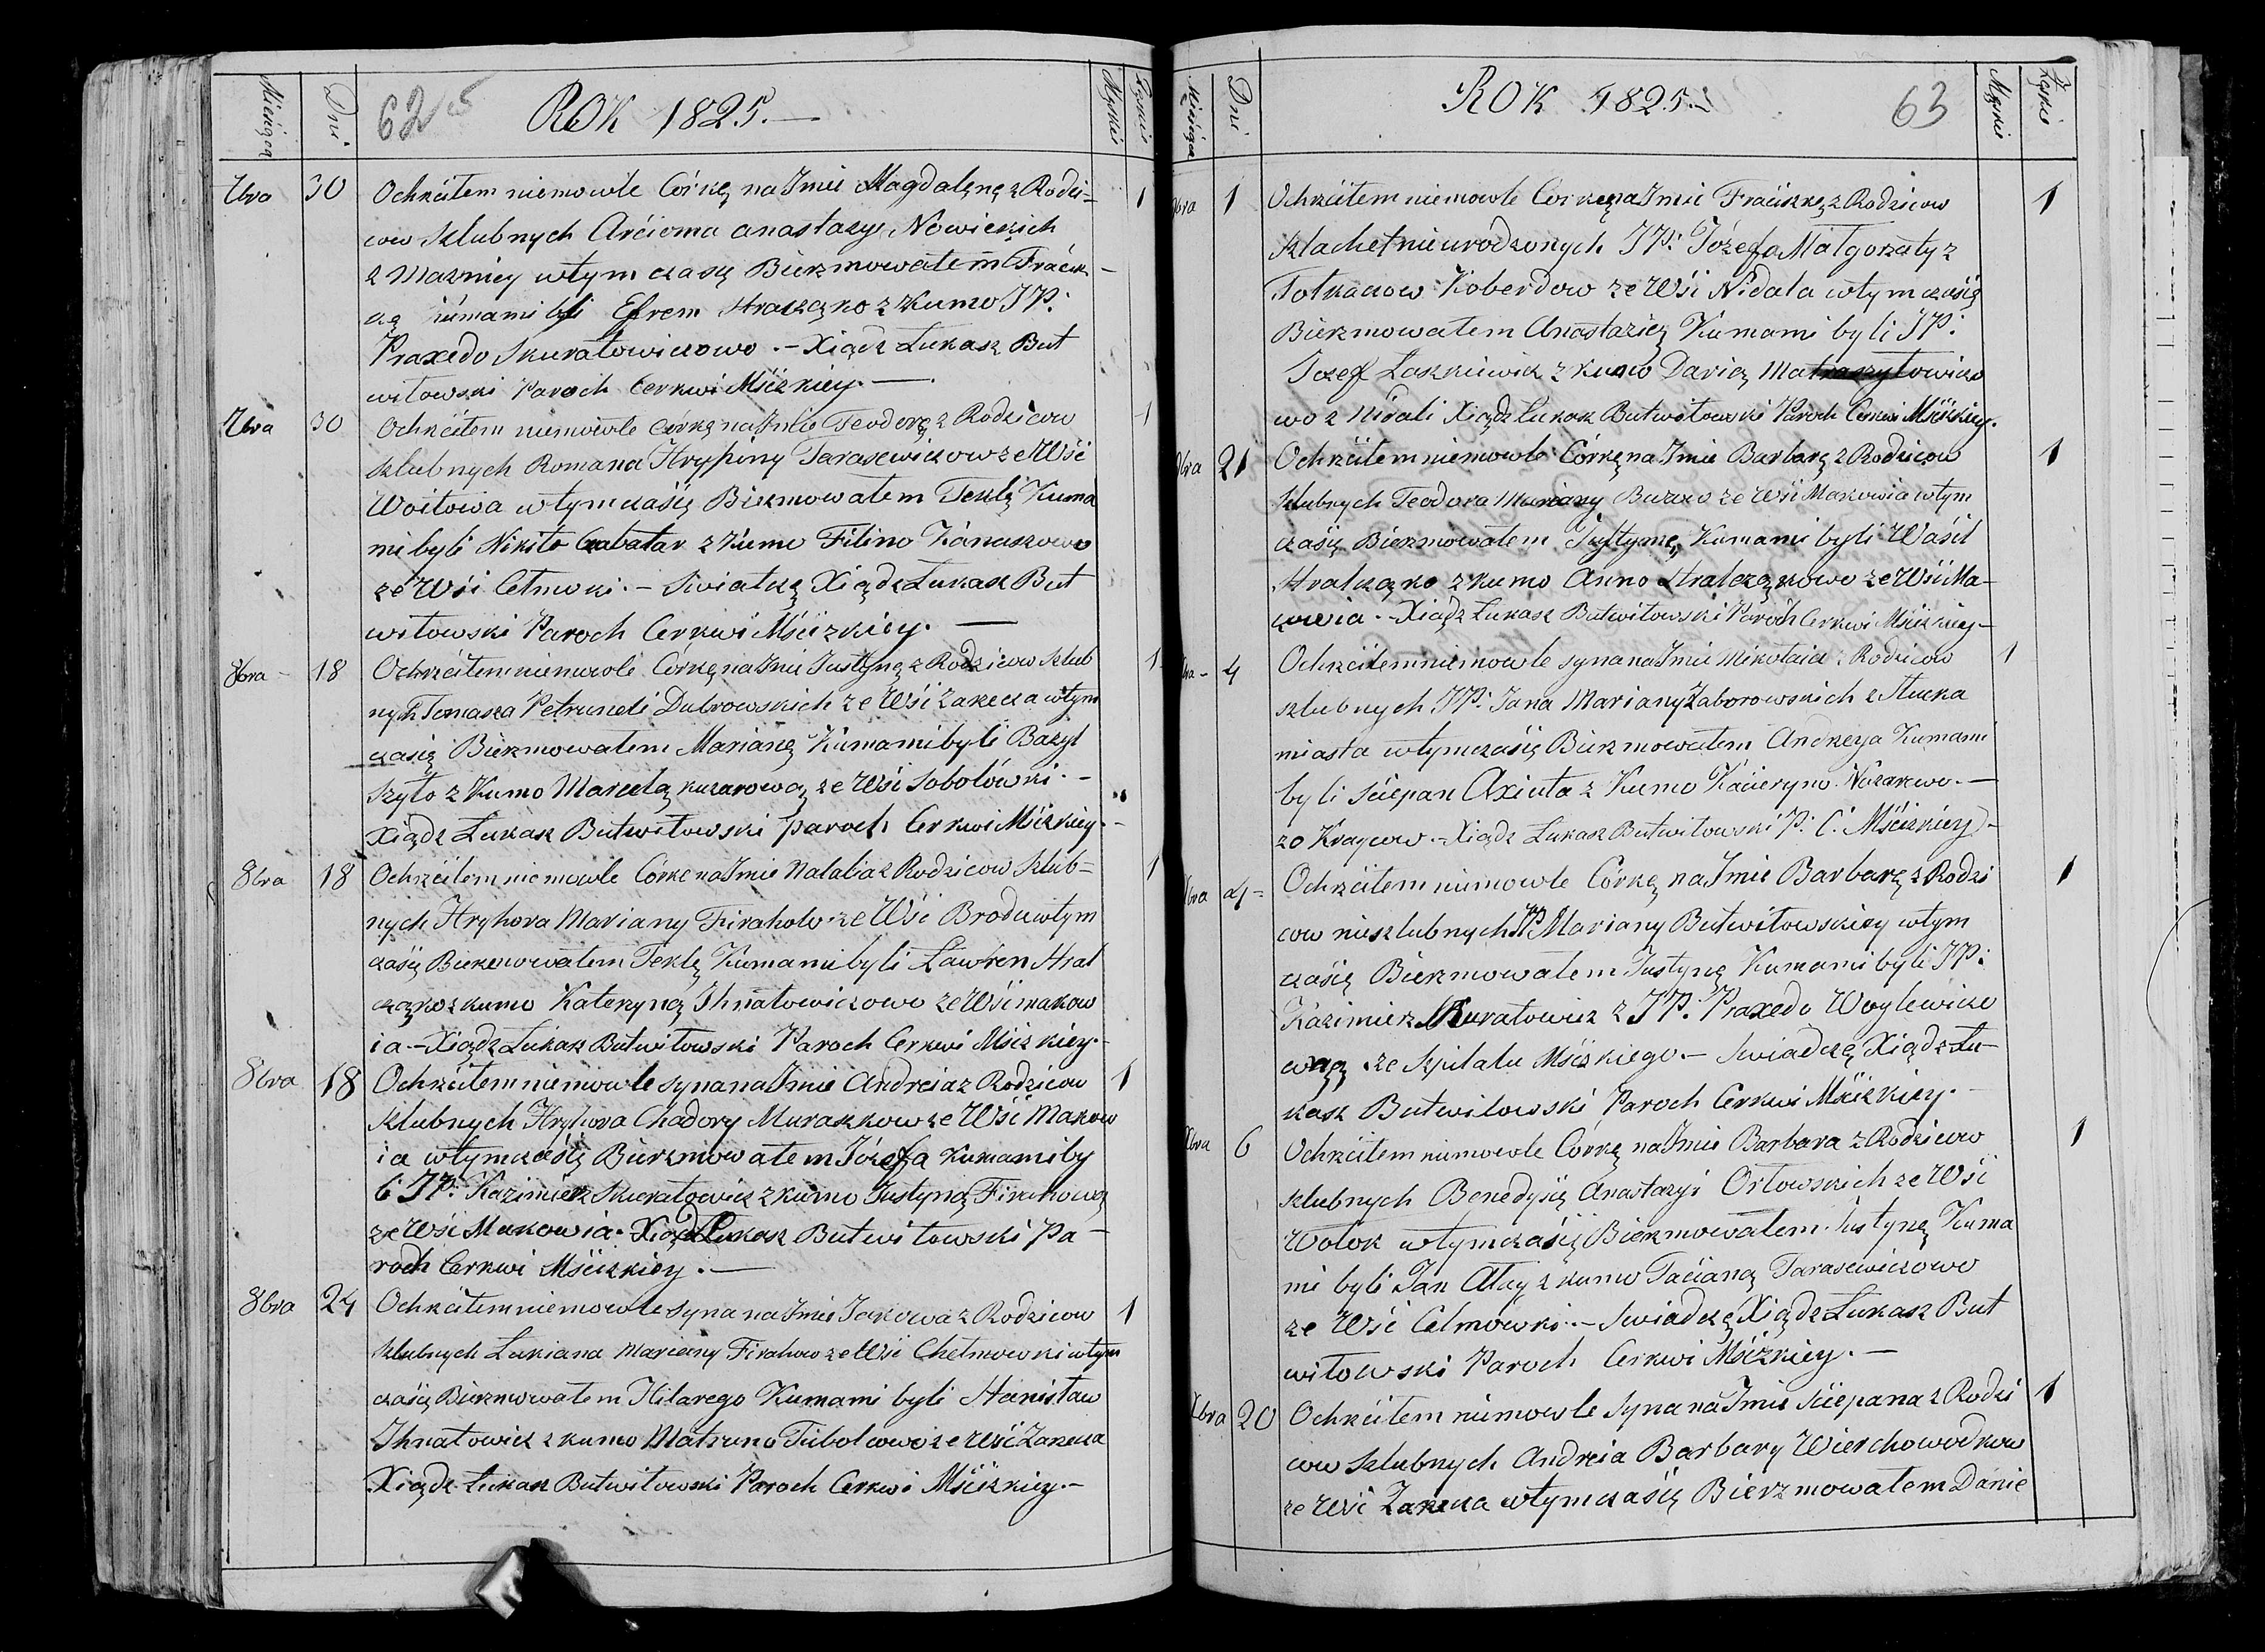 Miesiąca Dni 62 ROK 1825.— Męzkie Żęnskie
7bra 30 Ochrzciłem niemowle Córkę na Imie Magdalęnę z Rodzi- 1
cow szlubnych Arcioma anastazyi Nowickich
z Mazniey w tym czasię Bierzmowałem Fracisz-
ką kumami byli Efrem Hraczęko z Kumo JP:
Praxedo Skuratowiczowo.— Xiądz Łukasz But
witowski Paroch Cerkwi Mścizkiey.—
7bra 30 Ochrzciłem niemowle córkę na Imie Teodorę z Rodzicow 1
szlubnych Romana Hrypiny Tarasewiczow ze Wśi
Woitowa w tym czaśię Bierzmowałem Teklę Kuma
mi byli Nikito z Kumo Filino
ze Wśi Celmwki.— Swiatczę Xiądz Łukasz But
witowski Paroch Cerkwi Mścizkiey.—
8bra 18 Ochrzciłem niemowle Córkę na Imie Justynę z Rodzicow szlub 1
nych Tomasza Petruneli Dubrowskich ze Wśi Zarecza w tym
czasię Bierzmowałem Marianę Kumami byli Bazyl
Szyło z Kumo Marcelą kuzarową ze Wśi Sobolówki.—
Xiądz Łukasz Butwitowski Paroch Cerkwi Mścizkiey.—
8bra 18 Ochrzciłem niemowle Córke na Imie Natalia z Rodzicow Szlub= 1
nych Hryhora Mariany Firahow ze Wśi Brodu w tym
czaśię Bierzmowałem Teklę Kumami byli Ławren Hral
cząko z kumo Kateryną Ihnatowiczowo ze Wśi makow
ia.— Xiądz Łukasz Butwitowski Paroch Cerkwi Mścizkiey.—
8bra 18 Ochrzciłem niemowle syna na Imie Andreia z Rodzicow 1
szlubnych Hryhora Chadory Muraszkow ze Wśi Makow
ia w tym czaśię Bierzmowałem Józefa Kumami by
li JP: Kazimierz Skuratowicz z kumo Justyną Firahową
ze Wśi Makowia. Xiądz Łukasz Butwitowski Pa-
roch Cerkwi Mścizkiey.—
8bra 24 Ochrzciłem niemowle syna na Imie Jakowa z Rodzicow 1
szlubnych Łukiana Mariany Firahow ze Wśi Chelmowki w tym
czaśię Bierzmowałem Hilarego Kumami byli Stanisław
Ihnatowicz z kumo Matruno Tubolcowo ze Wśi Zarecza
Xiądz Łukasz Butwitowski Paroch Cerkwi Mścizkiey.—
Miesiąca Dni ROK 1825.— 63 Męzkie Żęnskie
9bra 1 Ochrzciłem niemowle Corkę na Imie Fraciszkę z Rodzicow 1
szlachetnie urodzonych JP: Józefa Małgorzaty z
Tołkaczow Koberdow ze Wśi Nidala w tym czaśię
Bierzmowałem Anastazię Kumami byli JP:
Jozef Łaszkiewicz z kumo Darią
wo z Nidali Xiądz Łukasz Butwitowski Paroch Cerkwi Mścizkiey.
9bra 21 Ochrzciłem niemowle Córkę na Imie Barbarę z Rodzicow 1
szlubnych Teodora Mariany ze Wśi Makowia w tym
czaśię Bierzmowałem Justynę, Kumami byli Waśil
Hralcząko z kumo Anno Hralczązkowo ze Wśi Ma-
kowia.— Xiądz Łukasz Butwitowski Paroch Cerkwi Mścizkiey—
4 Ochrzciłem niemowle syna na Imie Mikołaia z Rodzicow 1
szlubnych JP: Jana Mariany Zaborowskich z Słucka
miasta w tym czaśię Bierzmowałem Andrzeja Kumami
byli Sciepan Axiuta z Kumo Kacieryno Nazarowo.—
zo Kraycow.— Xiądz Łukasz Butwitowski P: C: Mścizkiey—
Xbra 4= Ochrzciłem niemowle Córkę na Imie Barbarę z Rodzi 1
cow nieszlubnych JP Mariany Butwitowskiey w tym
czaśię Bierzmowałem Justynę Kumami byli JP:
Kazimierz Skuratowicz z JP: Praxedo Woylewiczo
wną ze Szpitalu Mścizkiego.— Swiadczę Xiądz Łu-
kasz Butwitowski Paroch Cerkwi Mścizkiey.—
Xbra 6 Ochrzciłem niemowle Córkę na Imie Barbara z Rodzicow 1
szlubnych Benedysią Anastazyi Orłowskich ze Wśi
Wołok w tym czaśię Bierzmowałem Justynę Kuma
mi byli Jan Atay z kumo Tacianą Tarasewiczowo
ze Wśi Celmowki.— Swiadczę Xiądz Łukasz But
witowski Paroch Cerkwi Mścizkiey.—
Xbra 20 Ochrzciłem niemowle Syna na Imie Sciepana z Rodzi 1
cow Szlubnych Andreia Barbary Wierchowodkow
ze Wśi Zarecza w tym czaśię Bierzmowałem Danie